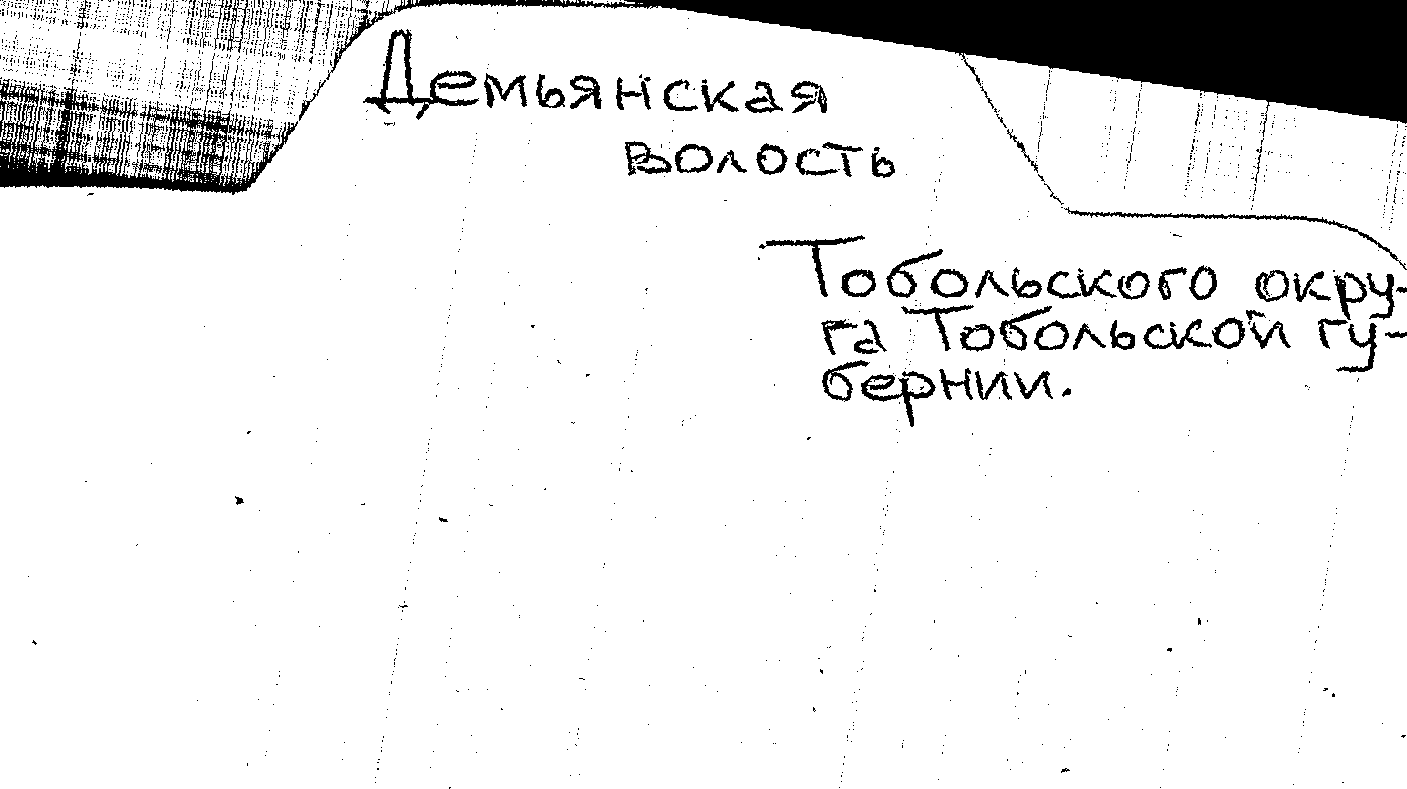 Демьянская
волость
Тобольского окру-
га Тобольской гу-
бернии.